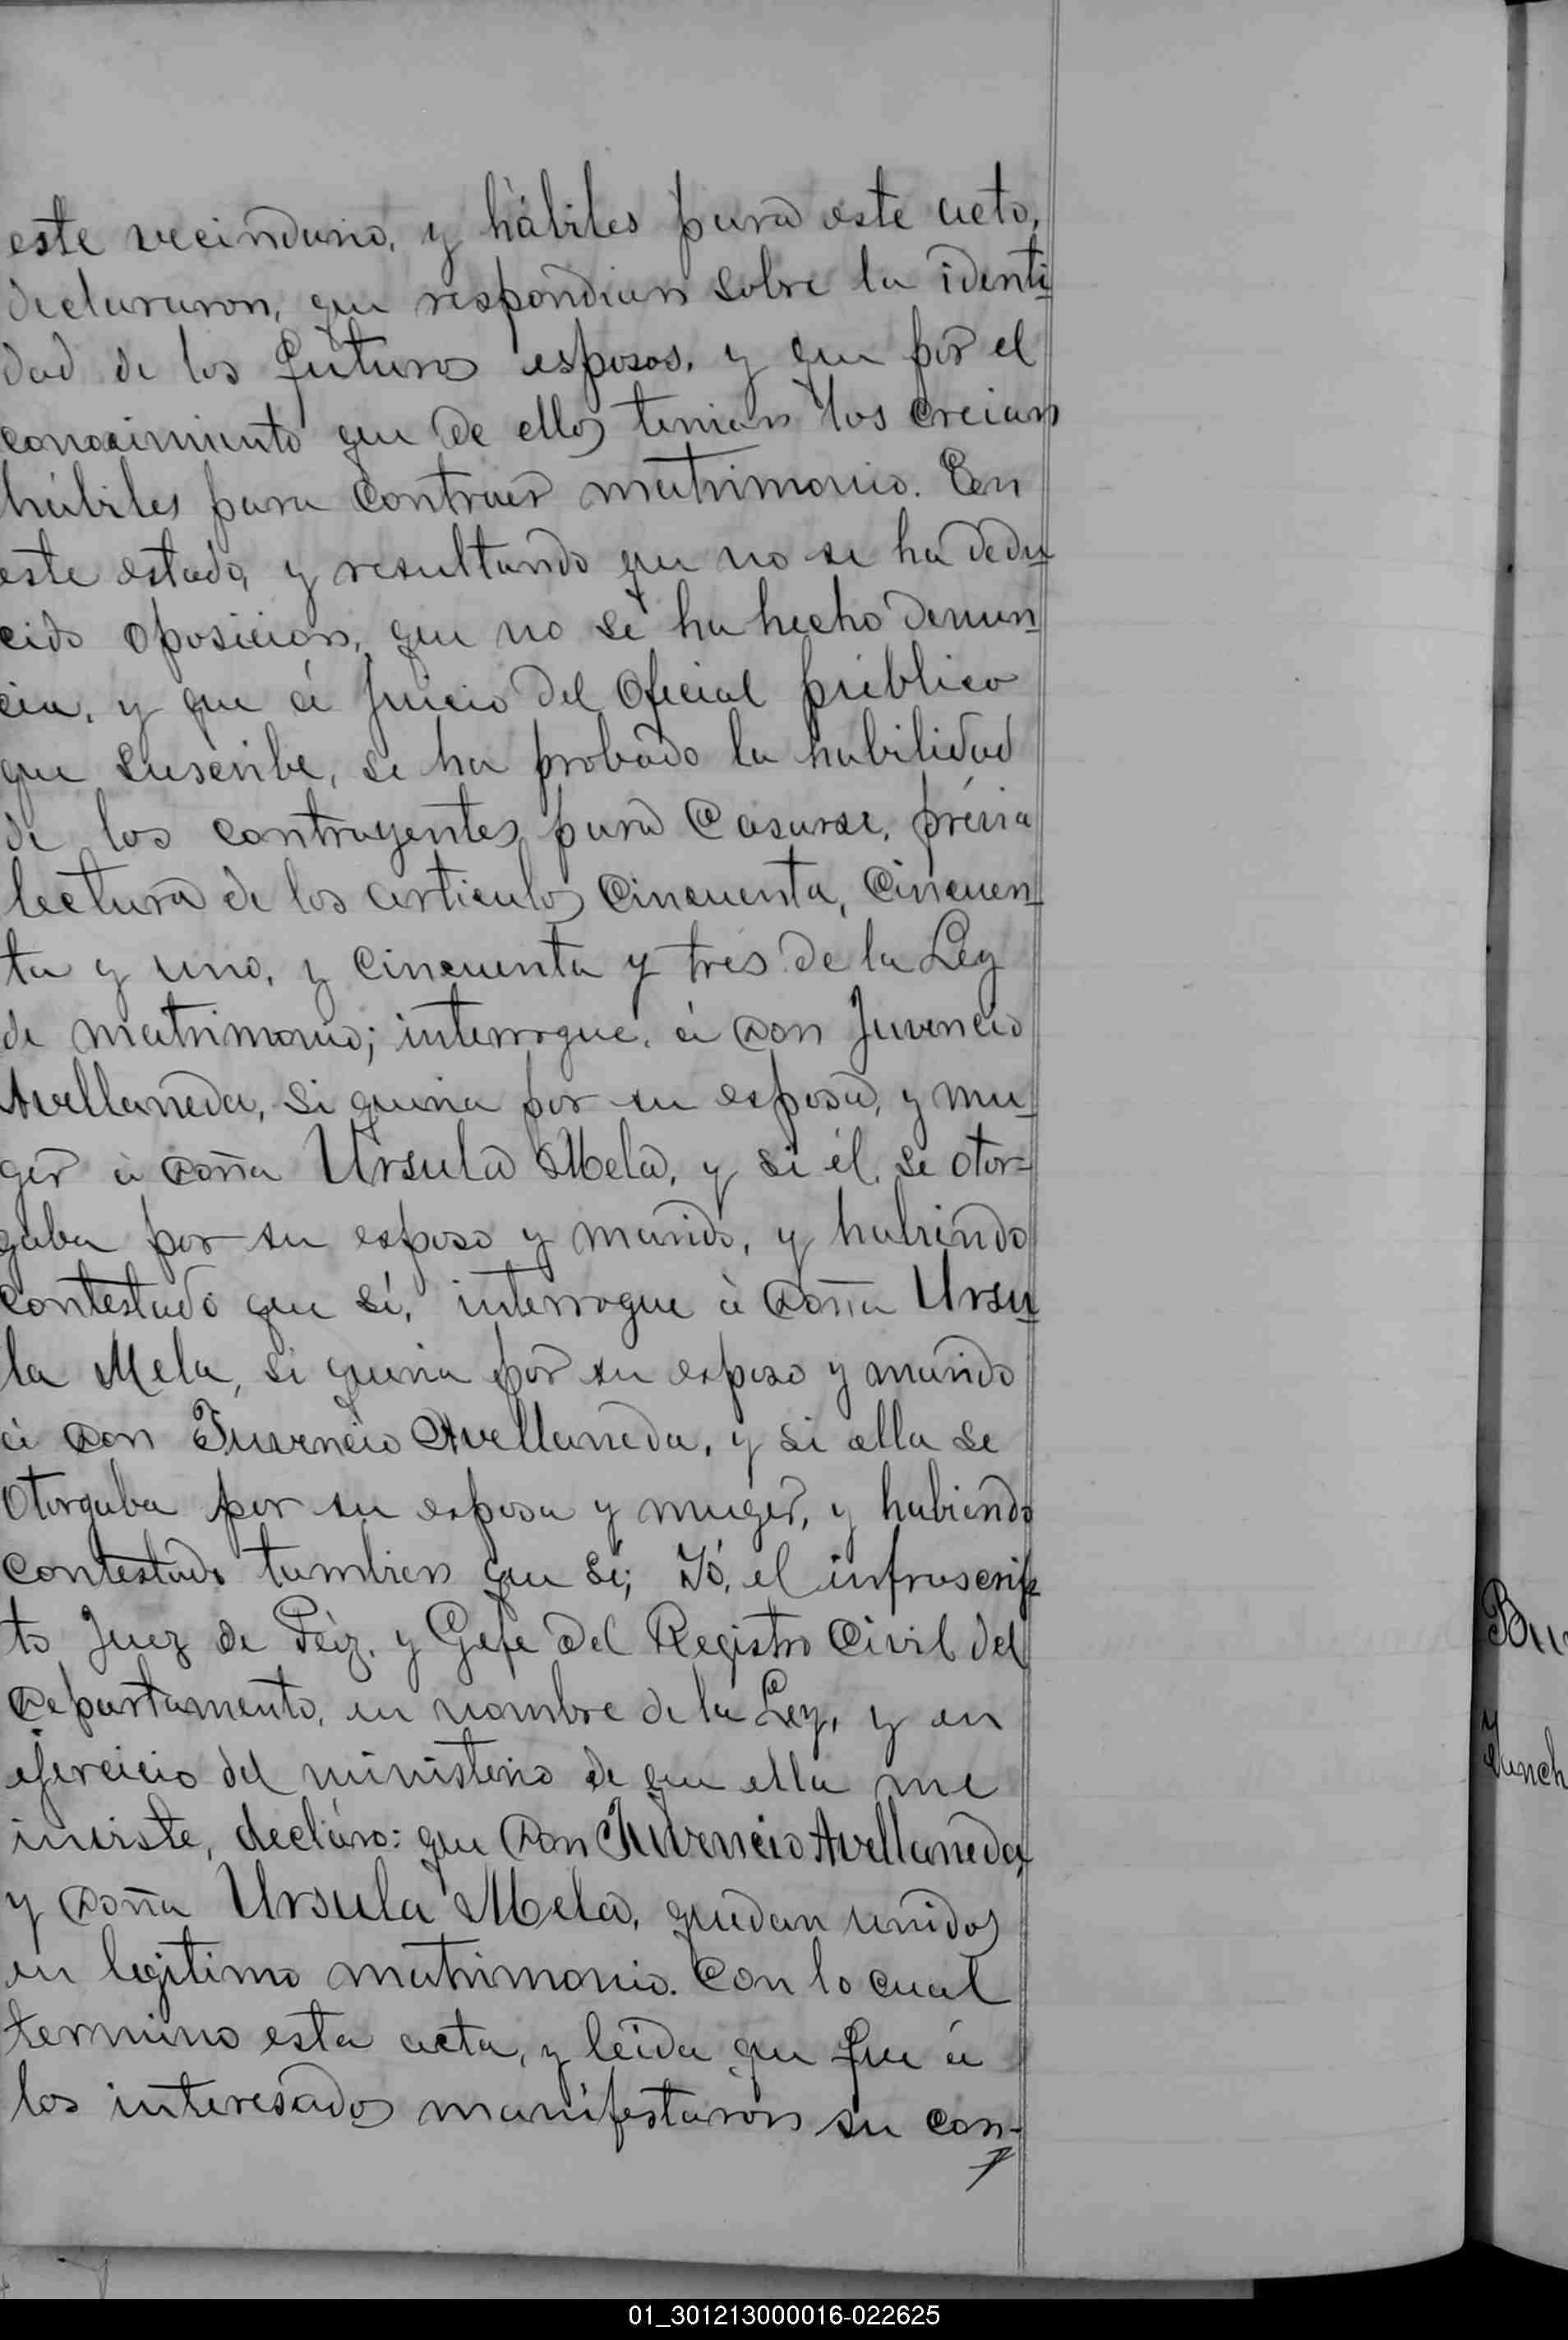 este vecindario, y hábiles para este acto,
declararon, que respondian sobre la identi
dad de los futuros esposos, y que por el
conocimiento que de ellos tenian los creian
hábiles para contraer matrimonio. En
este estado, y resultando que no se ha dedu
cido oposicion, que no se ha hecho denun
cia, y que á juicio del Oficial público
que suscribe, se ha probado la habilidad
de los contrayentes para casarse, prévia
lectura de los articulos cincuenta, cincuen
ta y uno, y cincuenta y tres de la Ley
de matrimonio; interrogué, á Don Juvencio
Avellaneda, si queria por su esposa, y mu
ger á Doña Ursula Mela, y si él, se otor=
gaba por su esposo y marido, y habiendo
contestado que sí, interrogue á Doña Ursu
la Mela, si queria por su esposo y marido
á Don Juvencio Avellaneda, y si ella se
otorgaba por su esposa y muger, y habiendo
contestado tambien que sí; Yó, el infrascrip
to Juez de Páz, y Gefe del Registro Civil del
Departamento, en nombre de la Ley, y en
ejercicio del ministerio de que ella me
inviste, decláro: que Don Juvencio Avellaneda,
y Doña Ursula Mela, quedan unidos
en legitimo matrimonio. Con lo cual
termino esta acta, y leida que fue á
los interesados manifestaron su con-
01_301213000016-022625